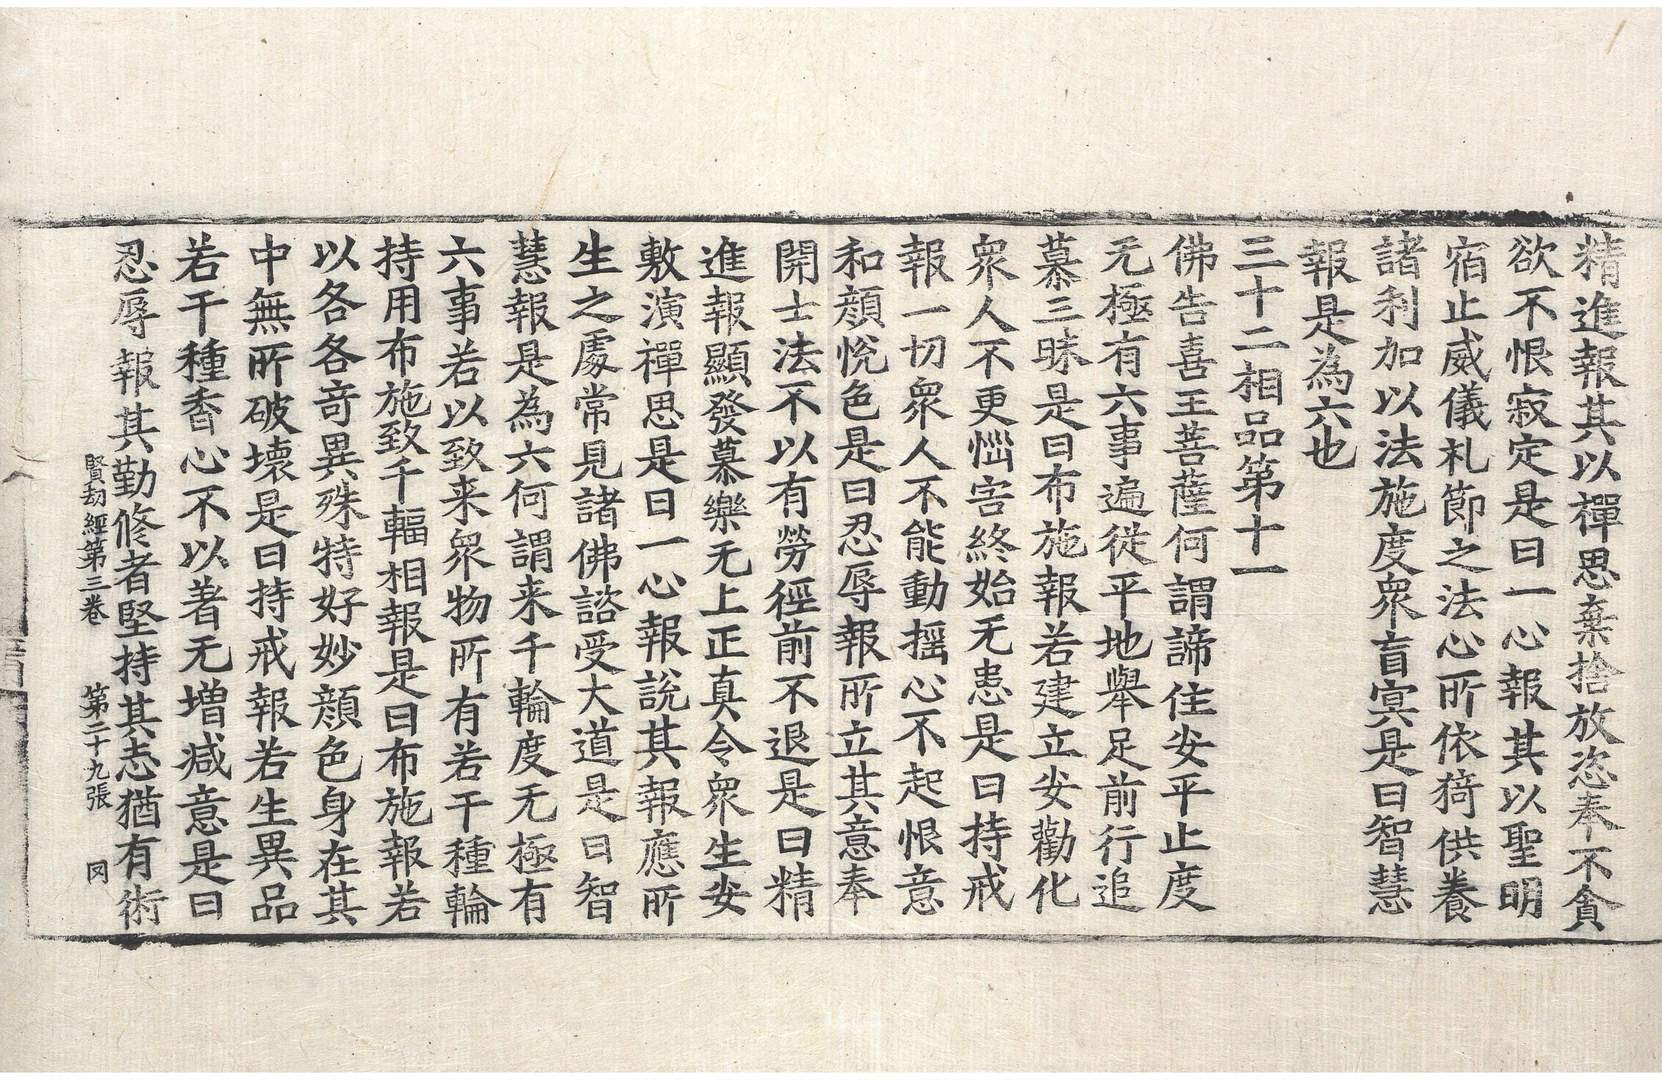 精進報其以禪思棄捨放恣奉不貪
欲不恨寂定是曰一心報其以聖明
宿止威儀礼節之法心所依猗供養
諸利加以法施度衆盲冥是曰智慧
報是為六也
三十二相品第十一
佛告喜王菩薩何謂諦住安平止度
无極有六事遍從平地舉足前行追
慕三昧是曰布施報若建立安勸化
衆人不更惱害終始无患是曰持戒
報一切衆人不能動搖心不起恨意
和顔悅色是曰忍辱報所立其意奉
開士法不以有勞徑前不退是曰精
進報顯發慕樂无上正真令衆生安
敷演禪思是曰一心報說其報應所
生之處常見諸佛諮受大道是曰智
慧報是為六何謂来千輪度无極有
六事若以致来衆物所有若干種輪
持用布施致千輻相報是曰布施報若
以各各竒異殊特好妙顔色身在其
中無所破壞是曰持戒報若生異品
若干種香心不以著无增减意是曰
忍辱報其勤修者堅持其志猶有術
賢劫經第三卷 第二十九張 罔